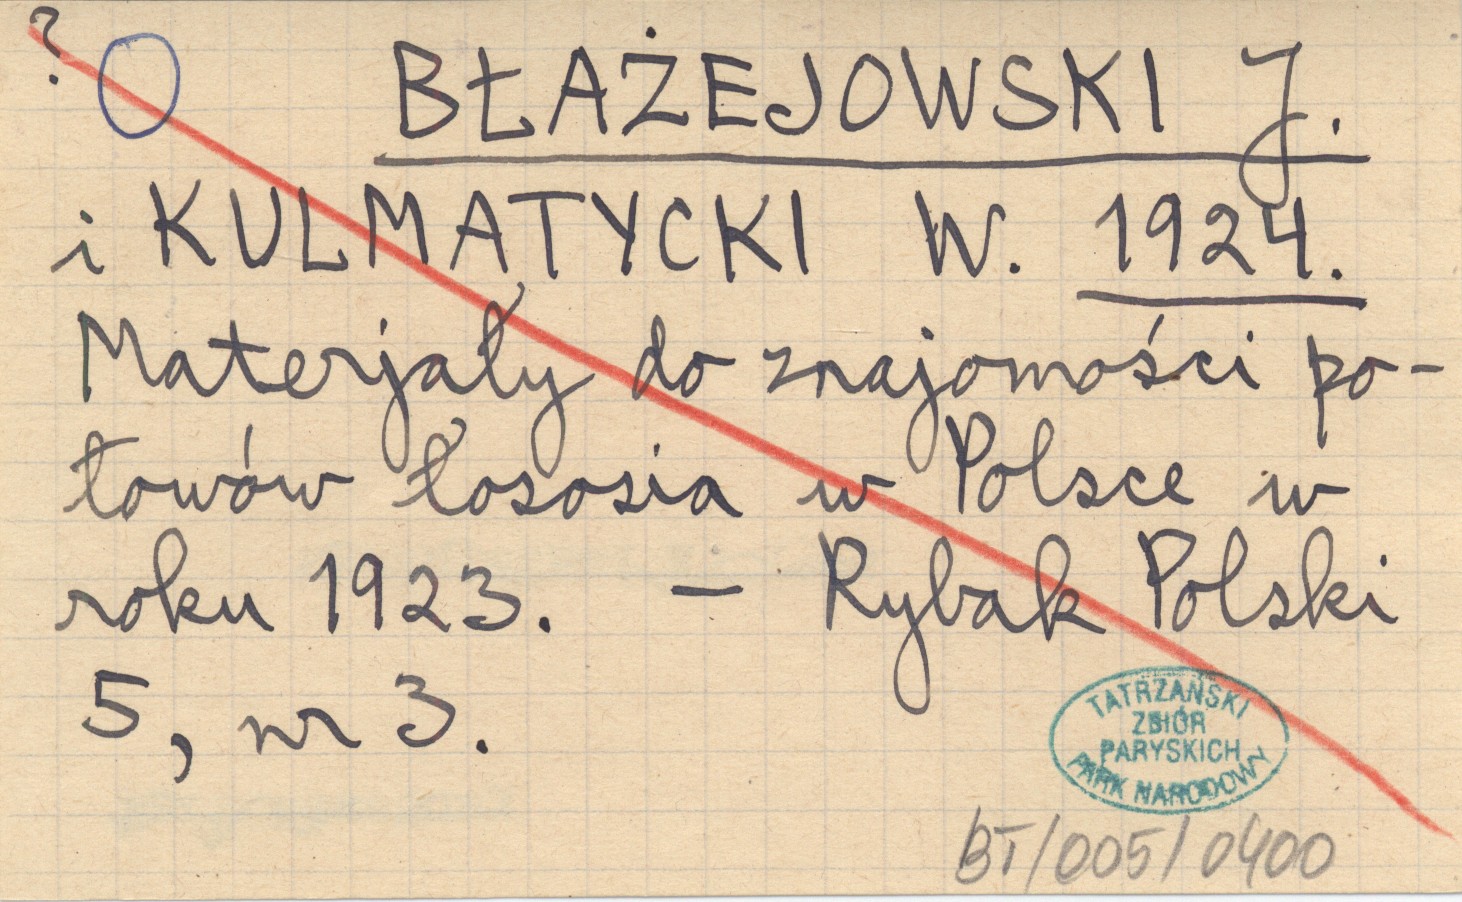 ?
BŁAŻEJOWSKI J.
i KULMATYCKI W. 1924.
Materjały do znajomości po-
łowów łososia w Polsce w
roku 1923. — Rybak Polski
5, nr 3.
TATRZAŃSKI
ZBIÓR
PARYSKICH
PARK NARODOWY
BT/005/0400